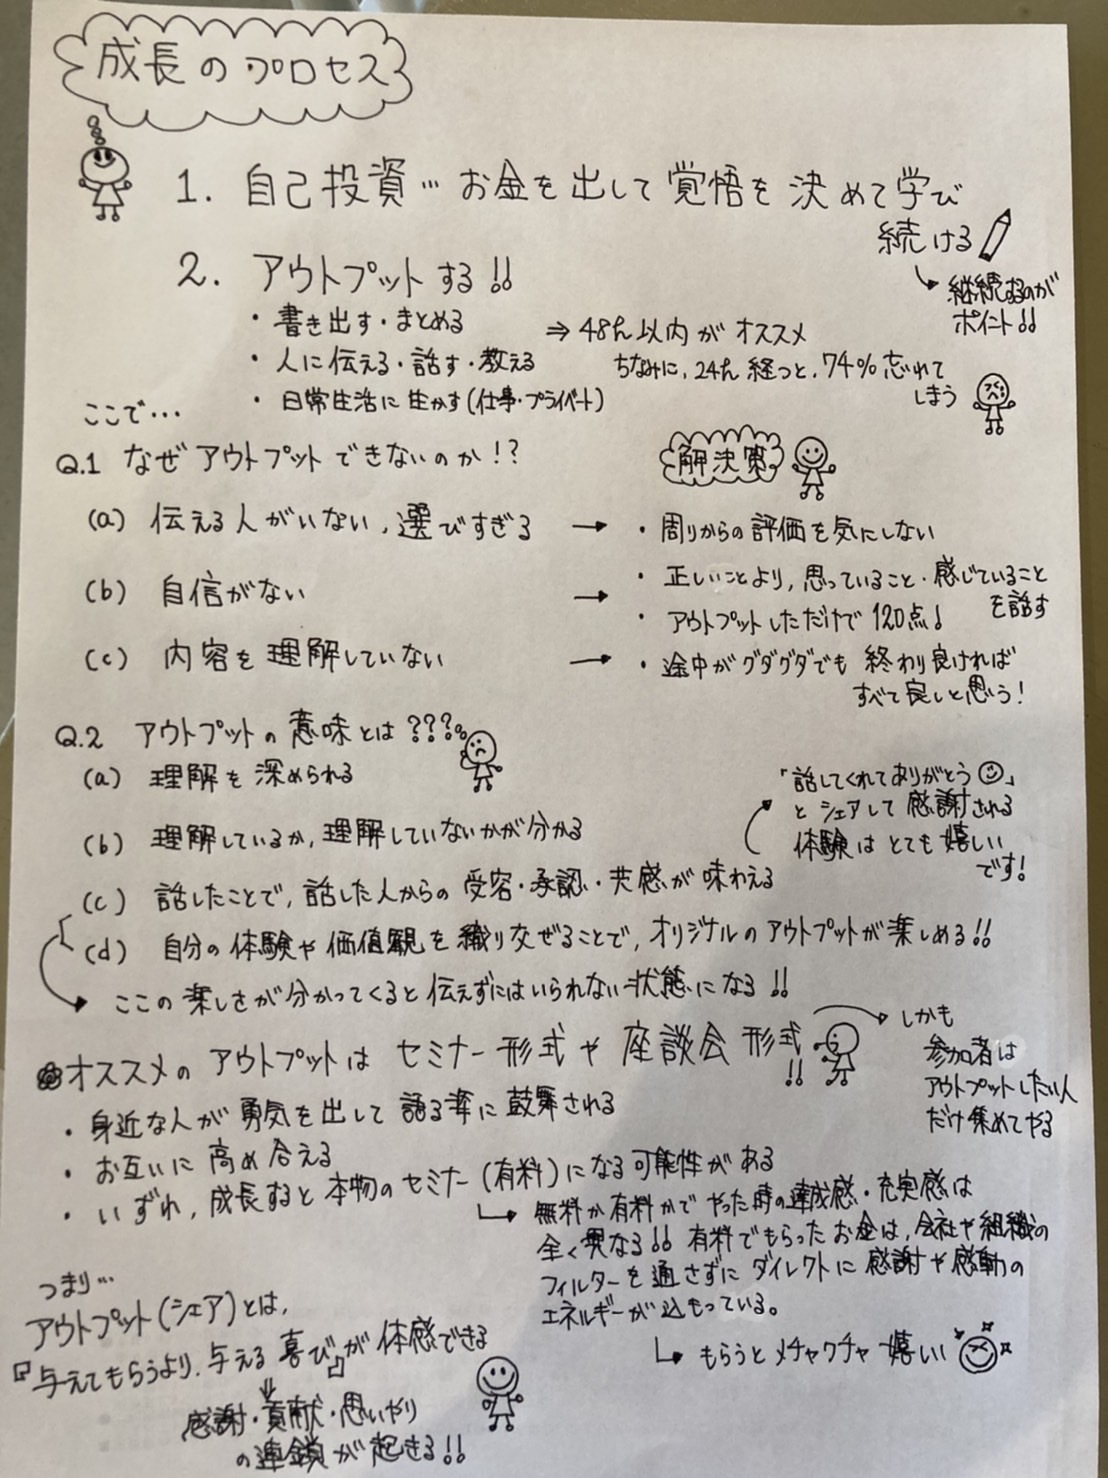 成長のプロセス
1. 自己投資…お金を出して覚悟を決めて学び
続ける
継続するのが
ポイント!!
2. アウトプットする!!
・書き出す・まとめる
・人に伝える・話す・教える
・日常生活に生かす(仕事・プライベート)
⇒48h以内がオススメ
ちなみに、24h経つと、74%忘れて
しまう
ここで…
Q.1 なぜアウトプットできないのか!?
解決策
(a) 伝える人がいない、選びすぎる → ・周りからの評価を気にしない
(b) 自信がない → ・正しいことより、思っていること・感じていること
を話す
・アウトプットしただけで120点!
(c) 内容を理解していない → ・途中がグダグダでも終わり良ければ
すべて良しと思う!
Q.2 アウトプットの意味とは????
(a) 理解を深められる
(b) 理解しているか、理解していないかが分かる
(c) 話したことで、話した人からの受容・承認・共感が味わえる
「話してくれてありがとう」
とシェアして感謝される
体験はとても嬉しい
です!
(d) 自分の体験や価値観を織り交ぜることで、オリジナルのアウトプットが楽しめる!!
ここの楽しさが分かってくると伝えずにはいられない状態になる!!
オススメのアウトプットはセミナー形式や座談会形式!!
しかも
参加者は
アウトプットしたい人
だけ集めてやる
・身近な人が勇気を出して語る姿に鼓舞される
・お互いに高め合える
・いずれ、成長すると本物のセミナー(有料)になる可能性がある
無料か有料かでやった時の達成感・充実感は
全く異なる!! 有料でもらったお金は、会社や組織の
フィルターを通さずにダイレクトに感謝や感動の
エネルギーが込もっている。
もらうとメチャクチャ嬉しい
つまり…
アウトプット(シェア)とは、
『与えてもらうより、与える喜び』が体感できる
⇓
感謝・貢献・思いやり
の連鎖が起きる!!